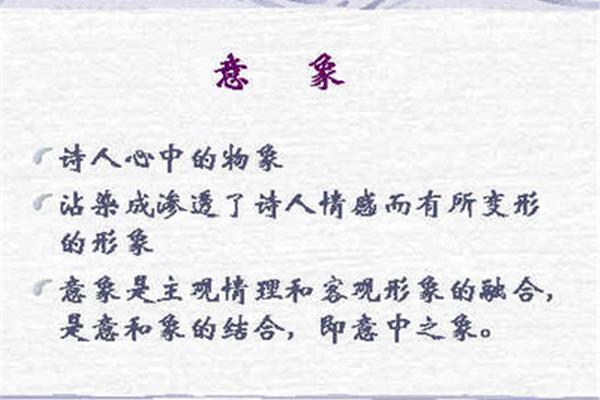 意 象
诗人心中的物象
沾染成渗透了诗人情感而有所变形
的形象
意象是主观情理和客观形象的融合，
是意和象的结合，即意中之象。